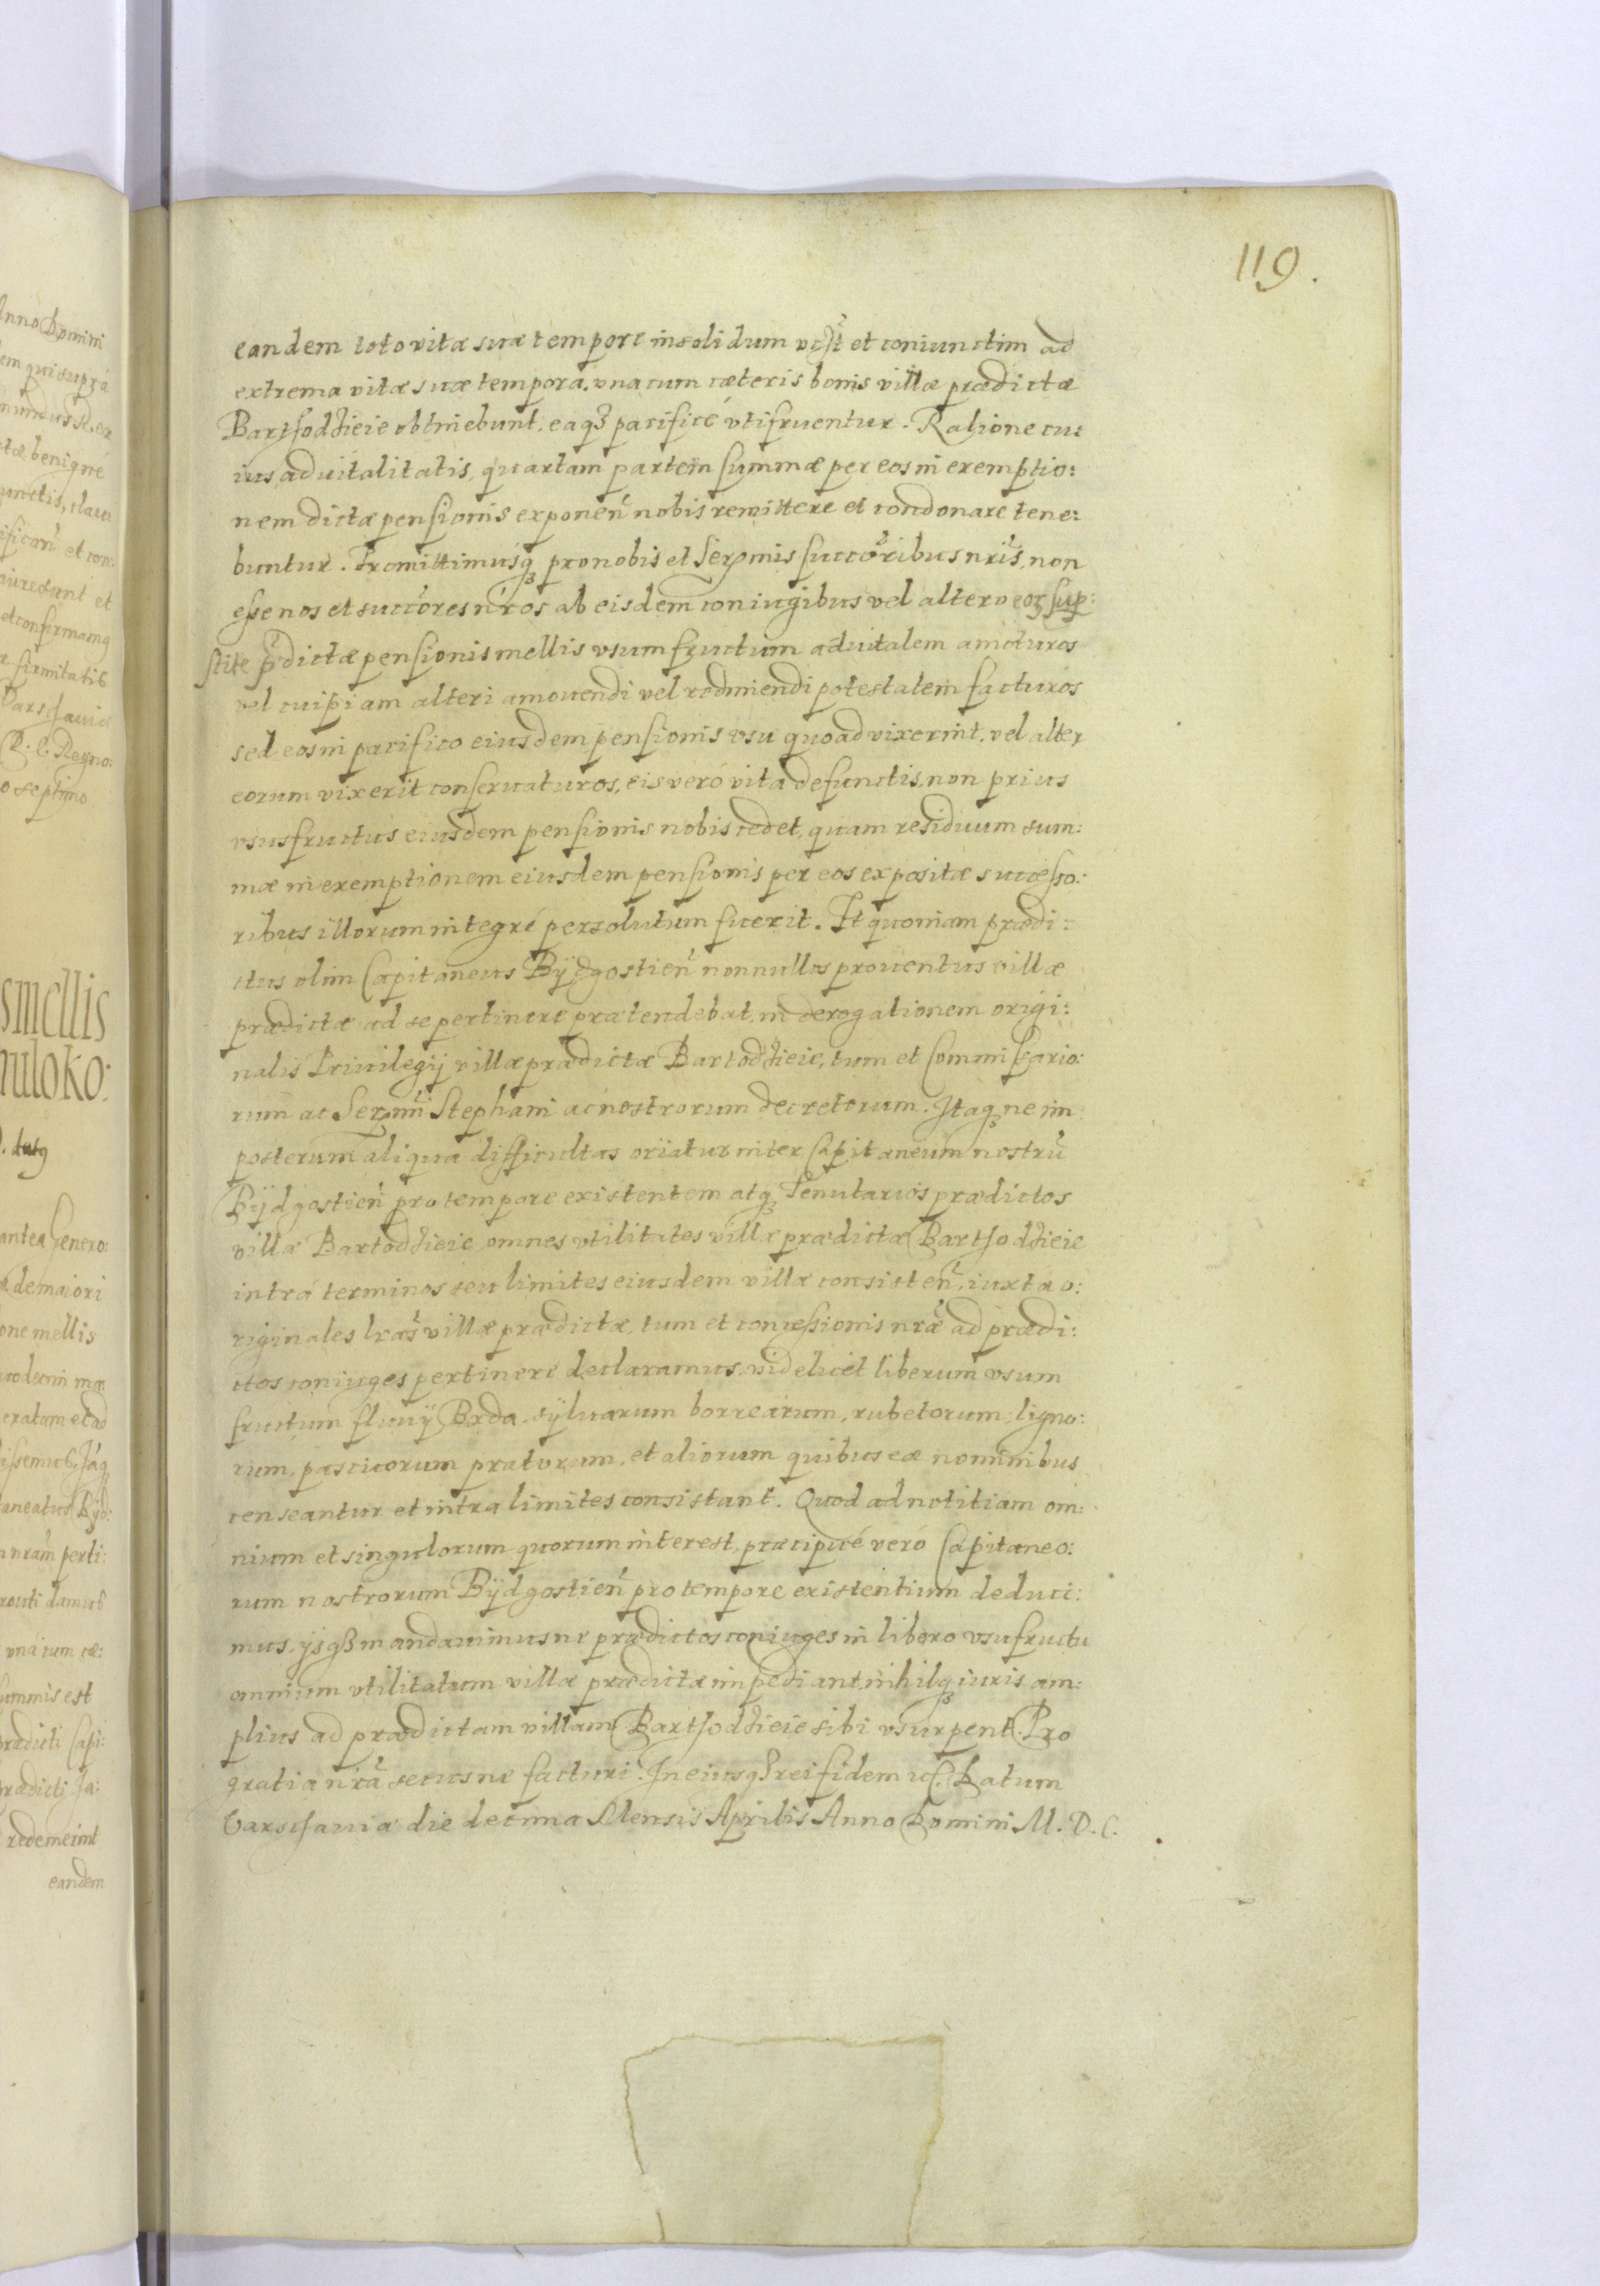 119.
eandem toto vitæ suæ tempore insolidum et coniunctim ad
extrema vitæ suæ tempora, vna cum cæteris bonis villæ prædictæ
Bartsoddieie obtinebunt, eaqꝫ pacificé vtifruentur. Ratione cu:
ius aduitalitatis, quartam partem summæ per eos in exemptio:
nem dictæ pensionis exponen̄ nobis remittere et condonare tene:
buntur. Promittimusqꝫ pro nobis et Serᵐⁱˢ succōribus nrīs, non
esse nos et succōres nr̄os ab eisdem coniugibus vel altero eoꝝ sup̱:
stite pr̄dictæ pensionis mellis vsumfructum aduitalem amoturos
vel cuipiam alteri amouendi vel redimendi potestatem facturos
sed eos in pacifico eiusdem pensionis vsu quoad vixerint, vel alter
eorum vixerit conseruaturos, eis veró vita defunctis, non prius
vsusfructus eiusdem pensionis nobis cedet, quam residuum sum:
mæ in exemptionem eiusdem pensionis per eos expositæ successo:
ribus illorum integré persolutum fuerit. Et quoniam prædi:
ctus olim Capitaneus Bÿdgostien̄ nonnullos prouentus villæ
prædictæ ad se pertinere prætendebat, in derogationem origi:
nalis Priuilegij villæ prædictæ Bartoddieie, tum et Commissario:
rum ac Serᵐⁱ Stephani ac nostrorum decretorum. Itaqꝫ ne im
posterum aliqua difficultas oriatur inter Capitaneum nostrū
Bÿdgostien̄ pro tempore existentem atqꝫ Tenutarios prædictos
villæ Bartoddieie, omnes vtilitates villæ prædictæ Bartsoddieie
intrá terminos seu limites eiusdem villæ consisten̄, iuxta o:
riginales lrās villæ prædictæ, tum et concessionis nrǣ ad prædi:
ctos coniuges pertinere declaramus, videlicet liberum vsum
fructum fluuÿ Brda, sÿluarum borrearum, rubetorum, ligno:
rum, pascuorum pratorum, et aliorum quibus ea nominibus
censeantur et intra limites consistant. Quod ad notitiam om:
nium et singulorum quorum interest, præcipué veró Capitaneo:
rum nostrorum Bÿdgostien̄ pro tempore existentium deduci:
mus, ijsqꝫ mandauimus ne prædictos coniuges in libero vsufructu
omnium vtilitatum villæ prædictæ impediant, nihilqꝫ iuris am:
plius ad prædictam villam Bartsoddieie sibi vsurpent. Pro
gratia nrā secus ne facturi. In eiusqꝫ rei fidem Datum
Varschauiæ die decima Mensis Aprilis Anno Domini M. D. C.